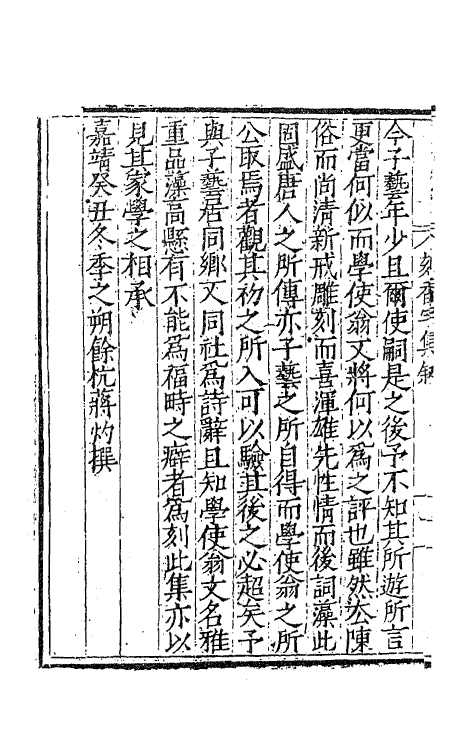 今子藝年少且爾使嗣是之後予不知其所遊所言
更當何似而學使翁又將何以爲之評也雖然去陳
俗而尚清新戒雕刻而喜渾雄先性情而後詞藻此
固盛唐人之所傳亦子藝之所自得而學使翁之所
公取焉者觀其初之所入可以驗其後之必超矣予
與子藝居同鄉又同社爲詩辭且知學使翁文名雅
重品藻高懸有不能爲福時之癖者爲刻此集亦以
見其家學之相承
嘉靖癸丑冬季之朔餘杭蔣灼撰